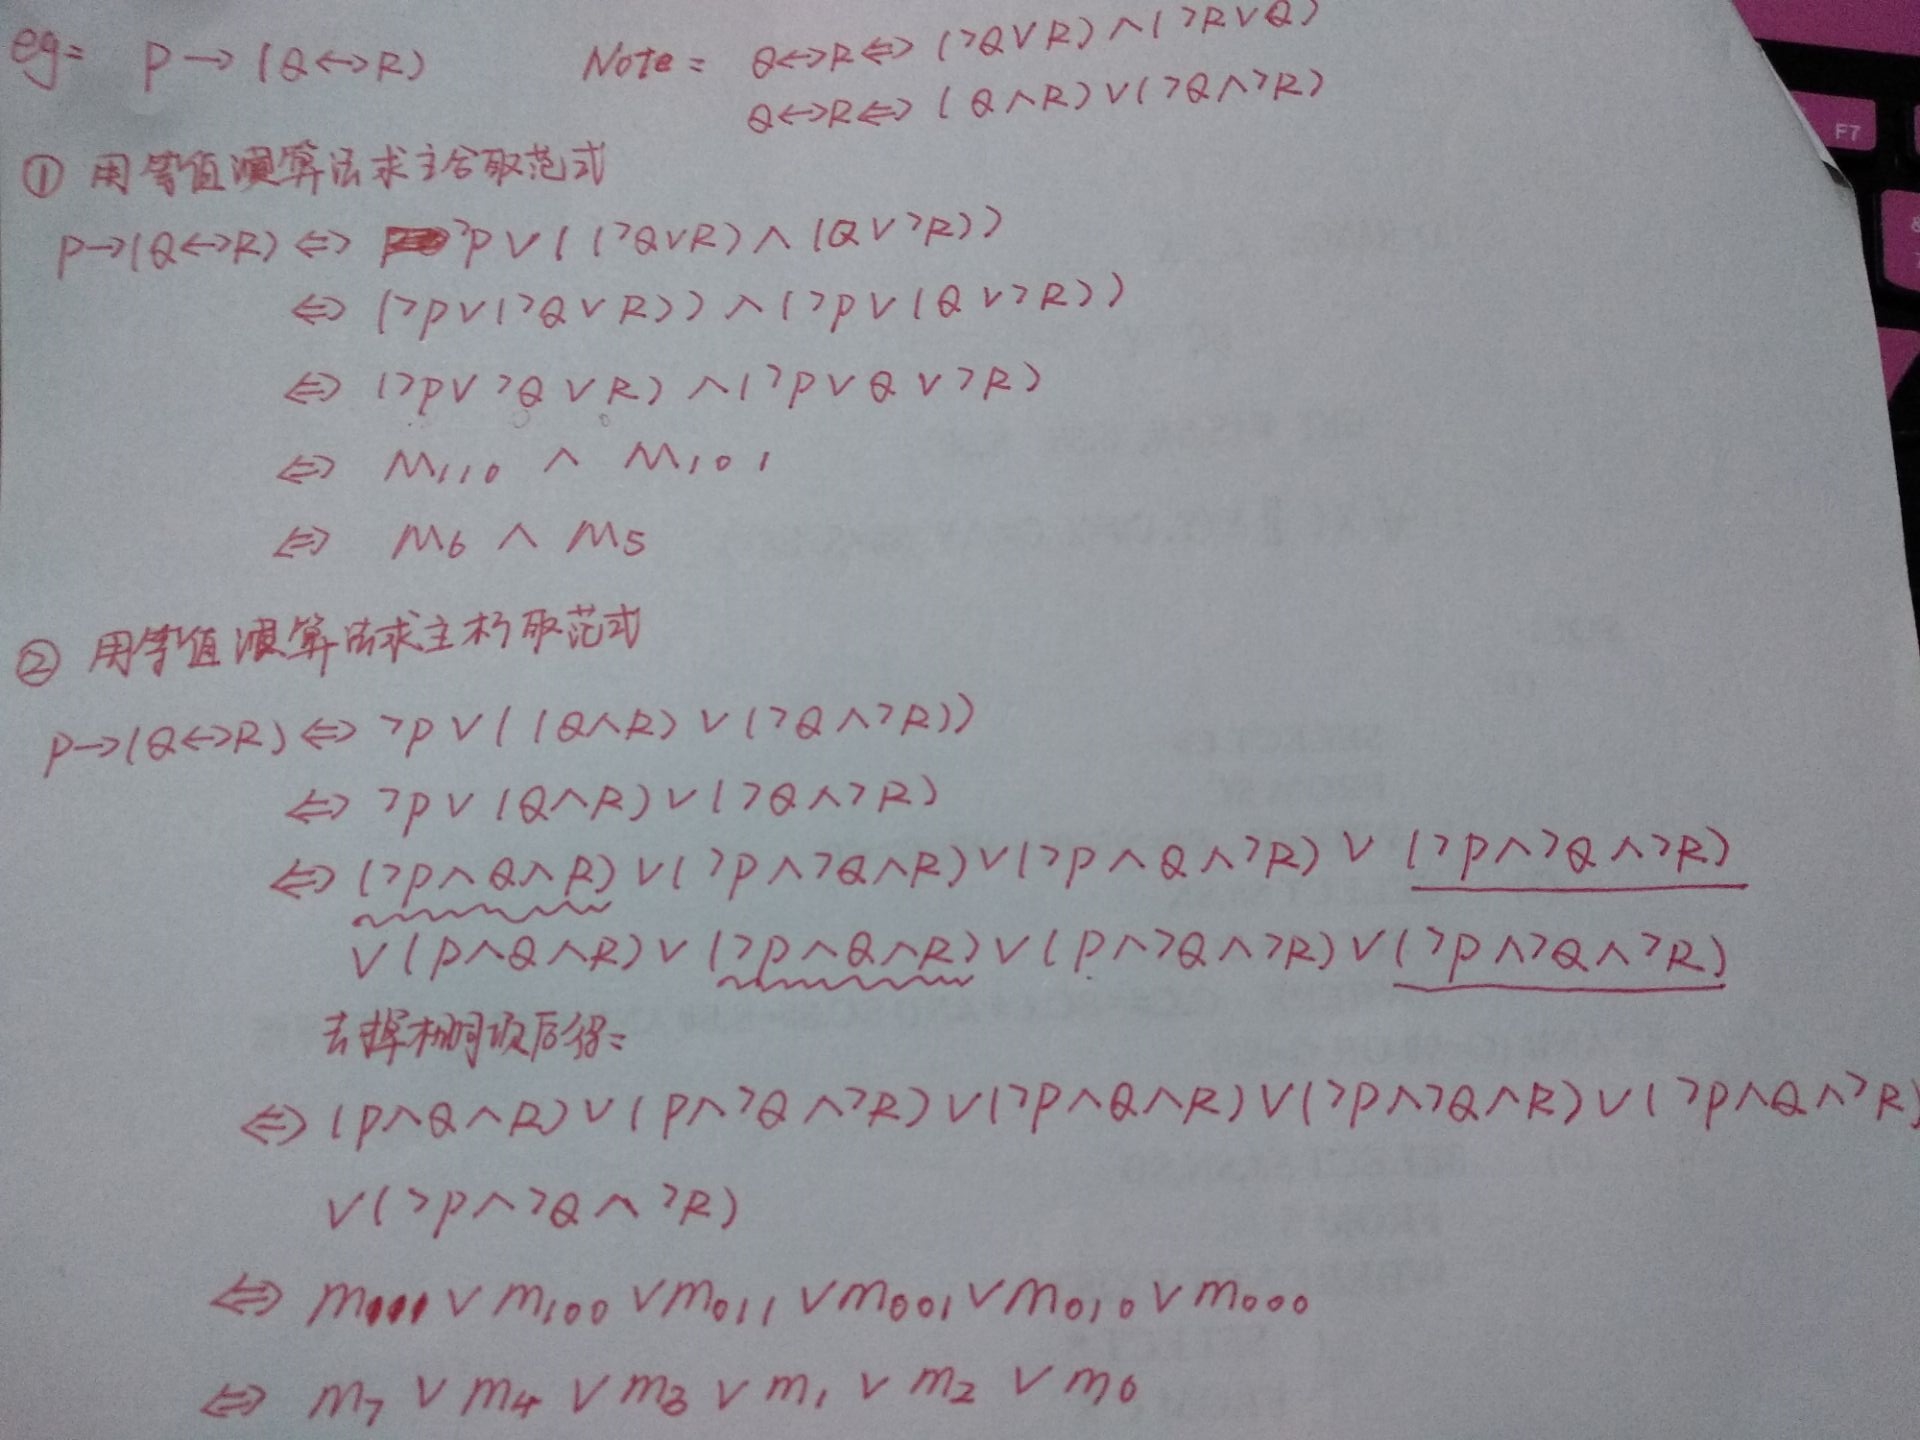 eg: P→(Q↔R) Note: Q↔R⇔(¬Q∨R)∧(¬R∨Q)
Q↔R⇔(Q∧R)∨(¬Q∧¬R)
① 用等值演算法求主合取范式
P→(Q↔R)⇔ ¬P∨((¬Q∨R)∧(Q∨¬R))
⇔(¬P∨(¬Q∨R))∧(¬P∨(Q∨¬R))
⇔(¬P∨¬Q∨R)∧(¬P∨Q∨¬R)
⇔ M110 ∧ M101
⇔ M6 ∧ M5
② 用等值演算法求主析取范式
P→(Q↔R)⇔¬P∨((Q∧R)∨(¬Q∧¬R))
⇔¬P∨(Q∧R)∨(¬Q∧¬R)
⇔(¬P∧Q∧R)∨(¬P∧¬Q∧R)∨(¬P∧Q∧¬R)∨(¬P∧¬Q∧¬R)
∨(P∧Q∧R)∨(¬P∧Q∧R)∨(P∧¬Q∧¬R)∨(¬P∧¬Q∧¬R)
去掉相同项后得:
⇔(P∧Q∧R)∨(P∧¬Q∧¬R)∨(¬P∧Q∧R)∨(¬P∧¬Q∧R)∨(¬P∧Q∧¬R)
∨(¬P∧¬Q∧¬R)
⇔ m111∨m100∨m011∨m001∨m010∨m000
⇔ m7∨m4∨m3∨m1∨m2∨m0
F7